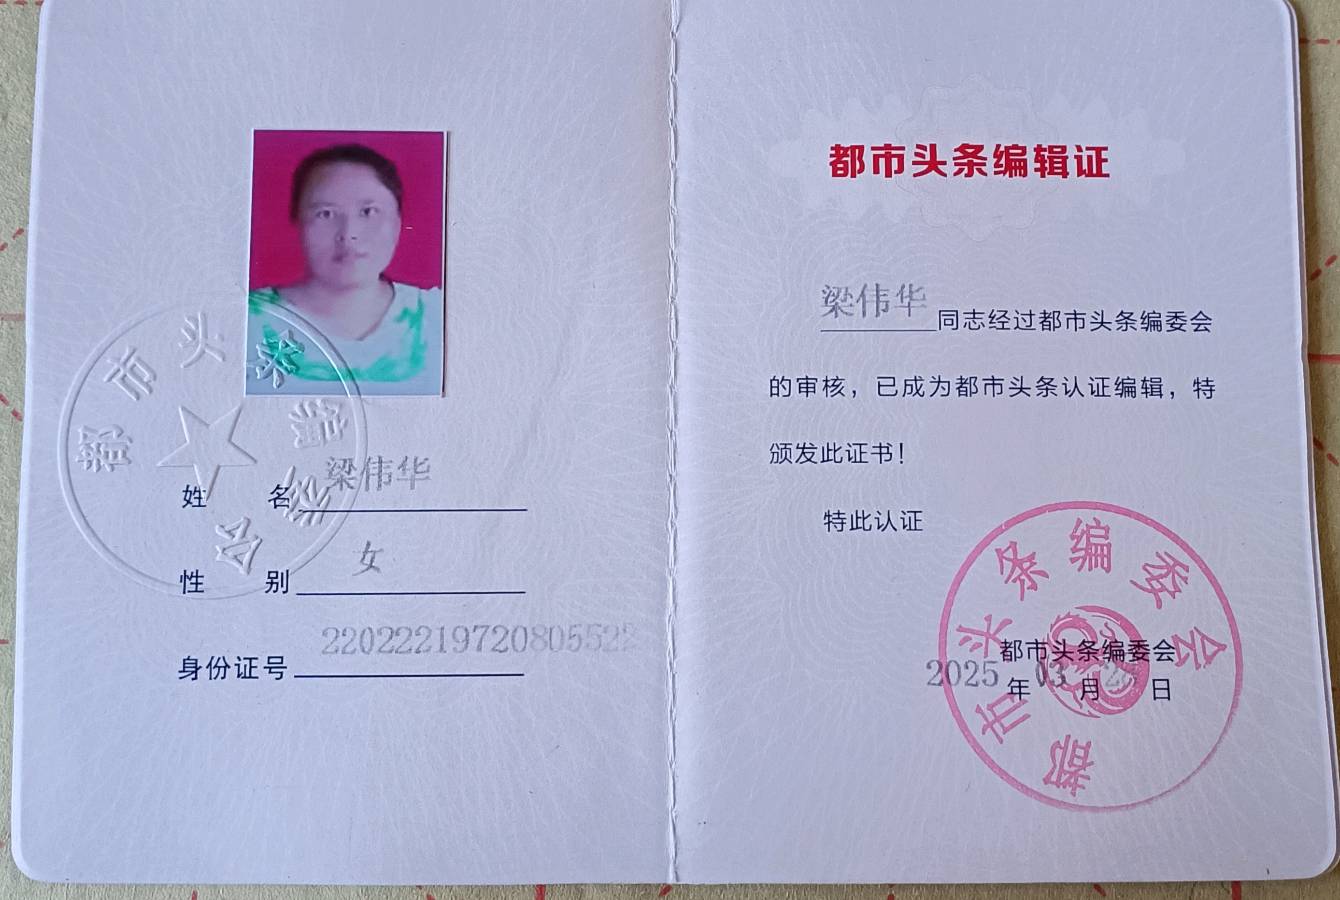 都市头条编委会
姓 名 梁伟华
性 别 女
身份证号 220222197208055
都市头条编辑证
梁伟华同志经过都市头条编委会
的审核，已成为都市头条认证编辑，特
颁发此证书！
特此认证
都市头条编委会
2025年03月 日
都市头条编委会